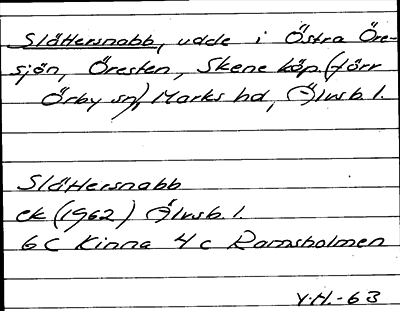 Slåttersnabb, udde i Östra Öre-
sjön, Öresten, Skene köp. (förr
Örby sn), Marks hd, Älvsb. l.
Slåttersnabb
ek (1962) Älvsb. l.
6 C Kinna 4 c Ramsholmen
Y.H.-63